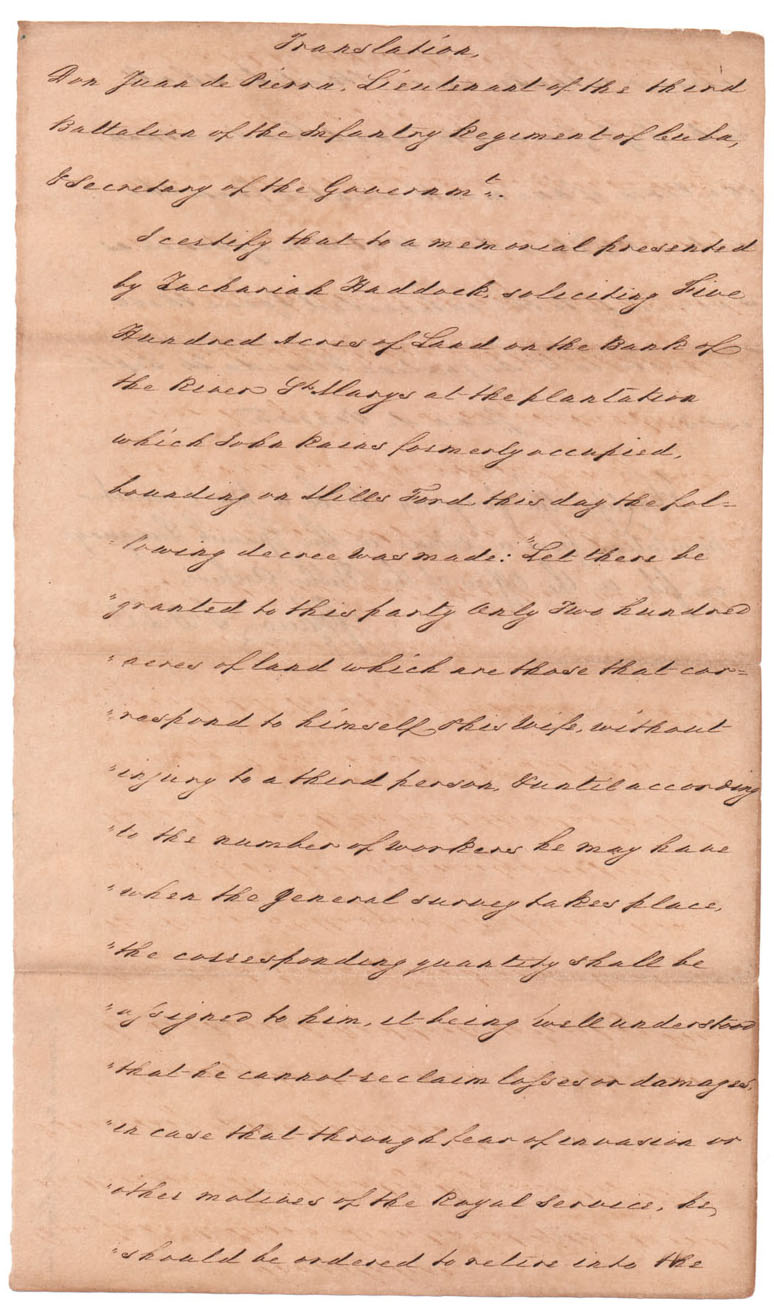 Translation,
Don Juan de Pierra, Lieutenant of the third
Battalion of the Infantry Regiment of Cuba,
& Secretary of the Governmt.
I certify that to a memorial presented
by Zachariah Haddock, soliciting Five
Hundred Acres of Land on the Bank of
the River St. Marys at the plantation
which John Rains formerly occupied,
bounding on Mills Ford this day the fol=
lowing decree was made: "Let there be
"granted to this party Only Two hundred
"acres of land which are those that cor=
"respond to himself & his Wife, without
"injury to a third person, & until according
"to the number of workers he may have
"when the General survey takes place,
"the corresponding quantity shall be
"assigned to him, it being well understood
"that he cannot reclaim losses or damages,
"in case that through fear of invasion or
"other motives of the Royal Service, he,
"should be ordered to retire into the